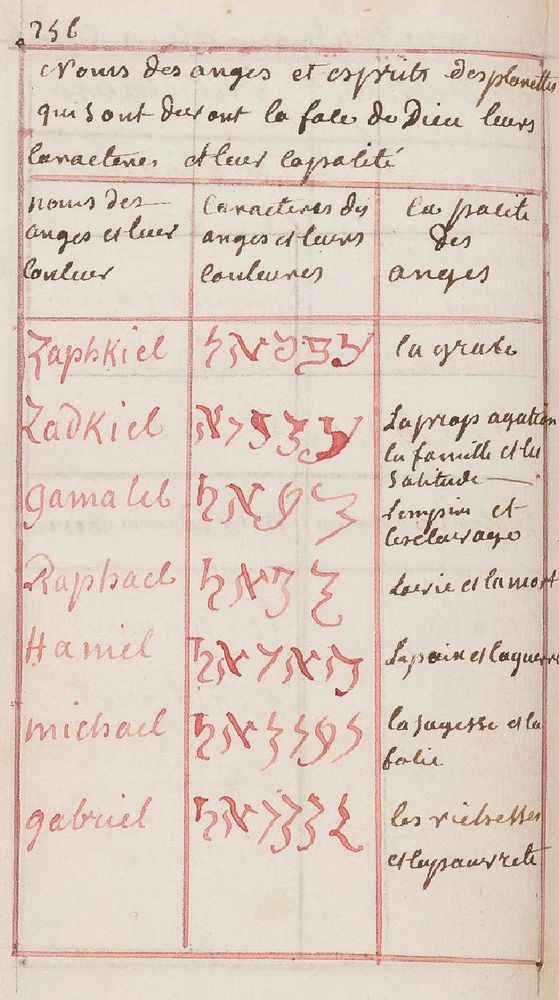 256
Noms des anges et esprits des planettes
qui sont devant la face de Dieu leurs
caracteres et leur capasité
noms des caracteres des la pacité
anges et leur anges et leurs des
couleur couleures anges
Zaphkiel la grace
Zadkiel La propagation
la famille et la
Solitude
gamalel L'empire et
l'esclavage
Raphael La vie et la mort
Haniel La paix et la guerre
michael la sagesse et la
folie
gabriel les richesses
et la pauvreté